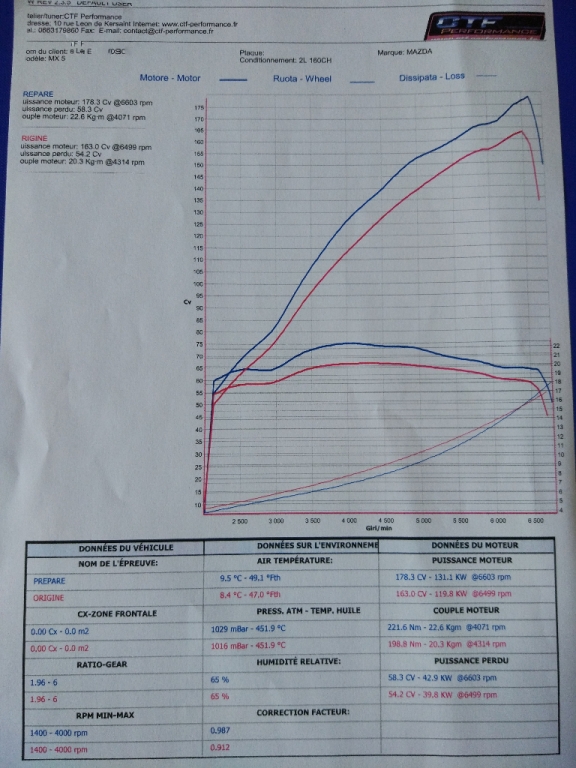 telier/tuner:CTF Performance
dresse: 10 rue Leon de Kersaint Internet: www.ctf-performance.fr
el.: 0663179860 Fax: E-mail: contact@ctf-performance.fr
CTF
PERFORMANCE
om du client:
odèle: MX 5
Plaque:
Conditionnement: 2L 160CH
Marque: MAZDA
Motore - Motor
Ruota - Wheel
Dissipata - Loss
REPARE
uissance moteur: 178.3 Cv @6603 rpm
uissance perdu: 58.3 Cv
ouple moteur: 22.6 Kg·m @4071 rpm
RIGINE
uissance moteur: 163.0 Cv @6499 rpm
uissance perdu: 54.2 Cv
ouple moteur: 20.3 Kg·m @4314 rpm
175
170
165
160
155
150
145
140
135
130
125
120
115
110
105
100
95
90
85
80
75
70
65
60
55
50
45
40
35
30
25
20
15
10
Cv
22
21
20
19
18
17
16
15
14
13
12
11
10
9
8
7
6
5
4
2 500 3 000 3 500 4 000 4 500 5 000 5 500 6 000 6 500
Giri/min
DONNÉES DU VÉHICULE DONNÉES SUR L'ENVIRONNEME DONNÉES DU MOTEUR
NOM DE L'ÉPREUVE: AIR TEMPÉRATURE: PUISSANCE MOTEUR
PREPARE 9.5 °C - 49,1 °Fth 178.3 CV - 131.1 KW @6603 rpm
ORIGINE 8.4 °C - 47,0 °Fth 163.0 CV - 119.8 KW @6499 rpm
CX-ZONE FRONTALE PRESS. ATM - TEMP. HUILE COUPLE MOTEUR
0.00 Cx - 0.0 m2 1029 mBar - 451.9 °C 221.6 Nm - 22.6 Kgm @4071 rpm
0,00 Cx - 0.0 m2 1016 mBar - 451.9 °C 198.8 Nm - 20.3 Kgm @4314 rpm
RATIO-GEAR HUMIDITÉ RELATIVE: PUISSANCE PERDU
1.96 - 6 65 % 58.3 CV - 42.9 KW @6603 rpm
1.96 - 6 65 % 54.2 CV - 39.8 KW @6499 rpm
RPM MIN-MAX CORRECTION FACTEUR:
1400 - 4000 rpm 0.987
1400 - 4000 rpm 0.912